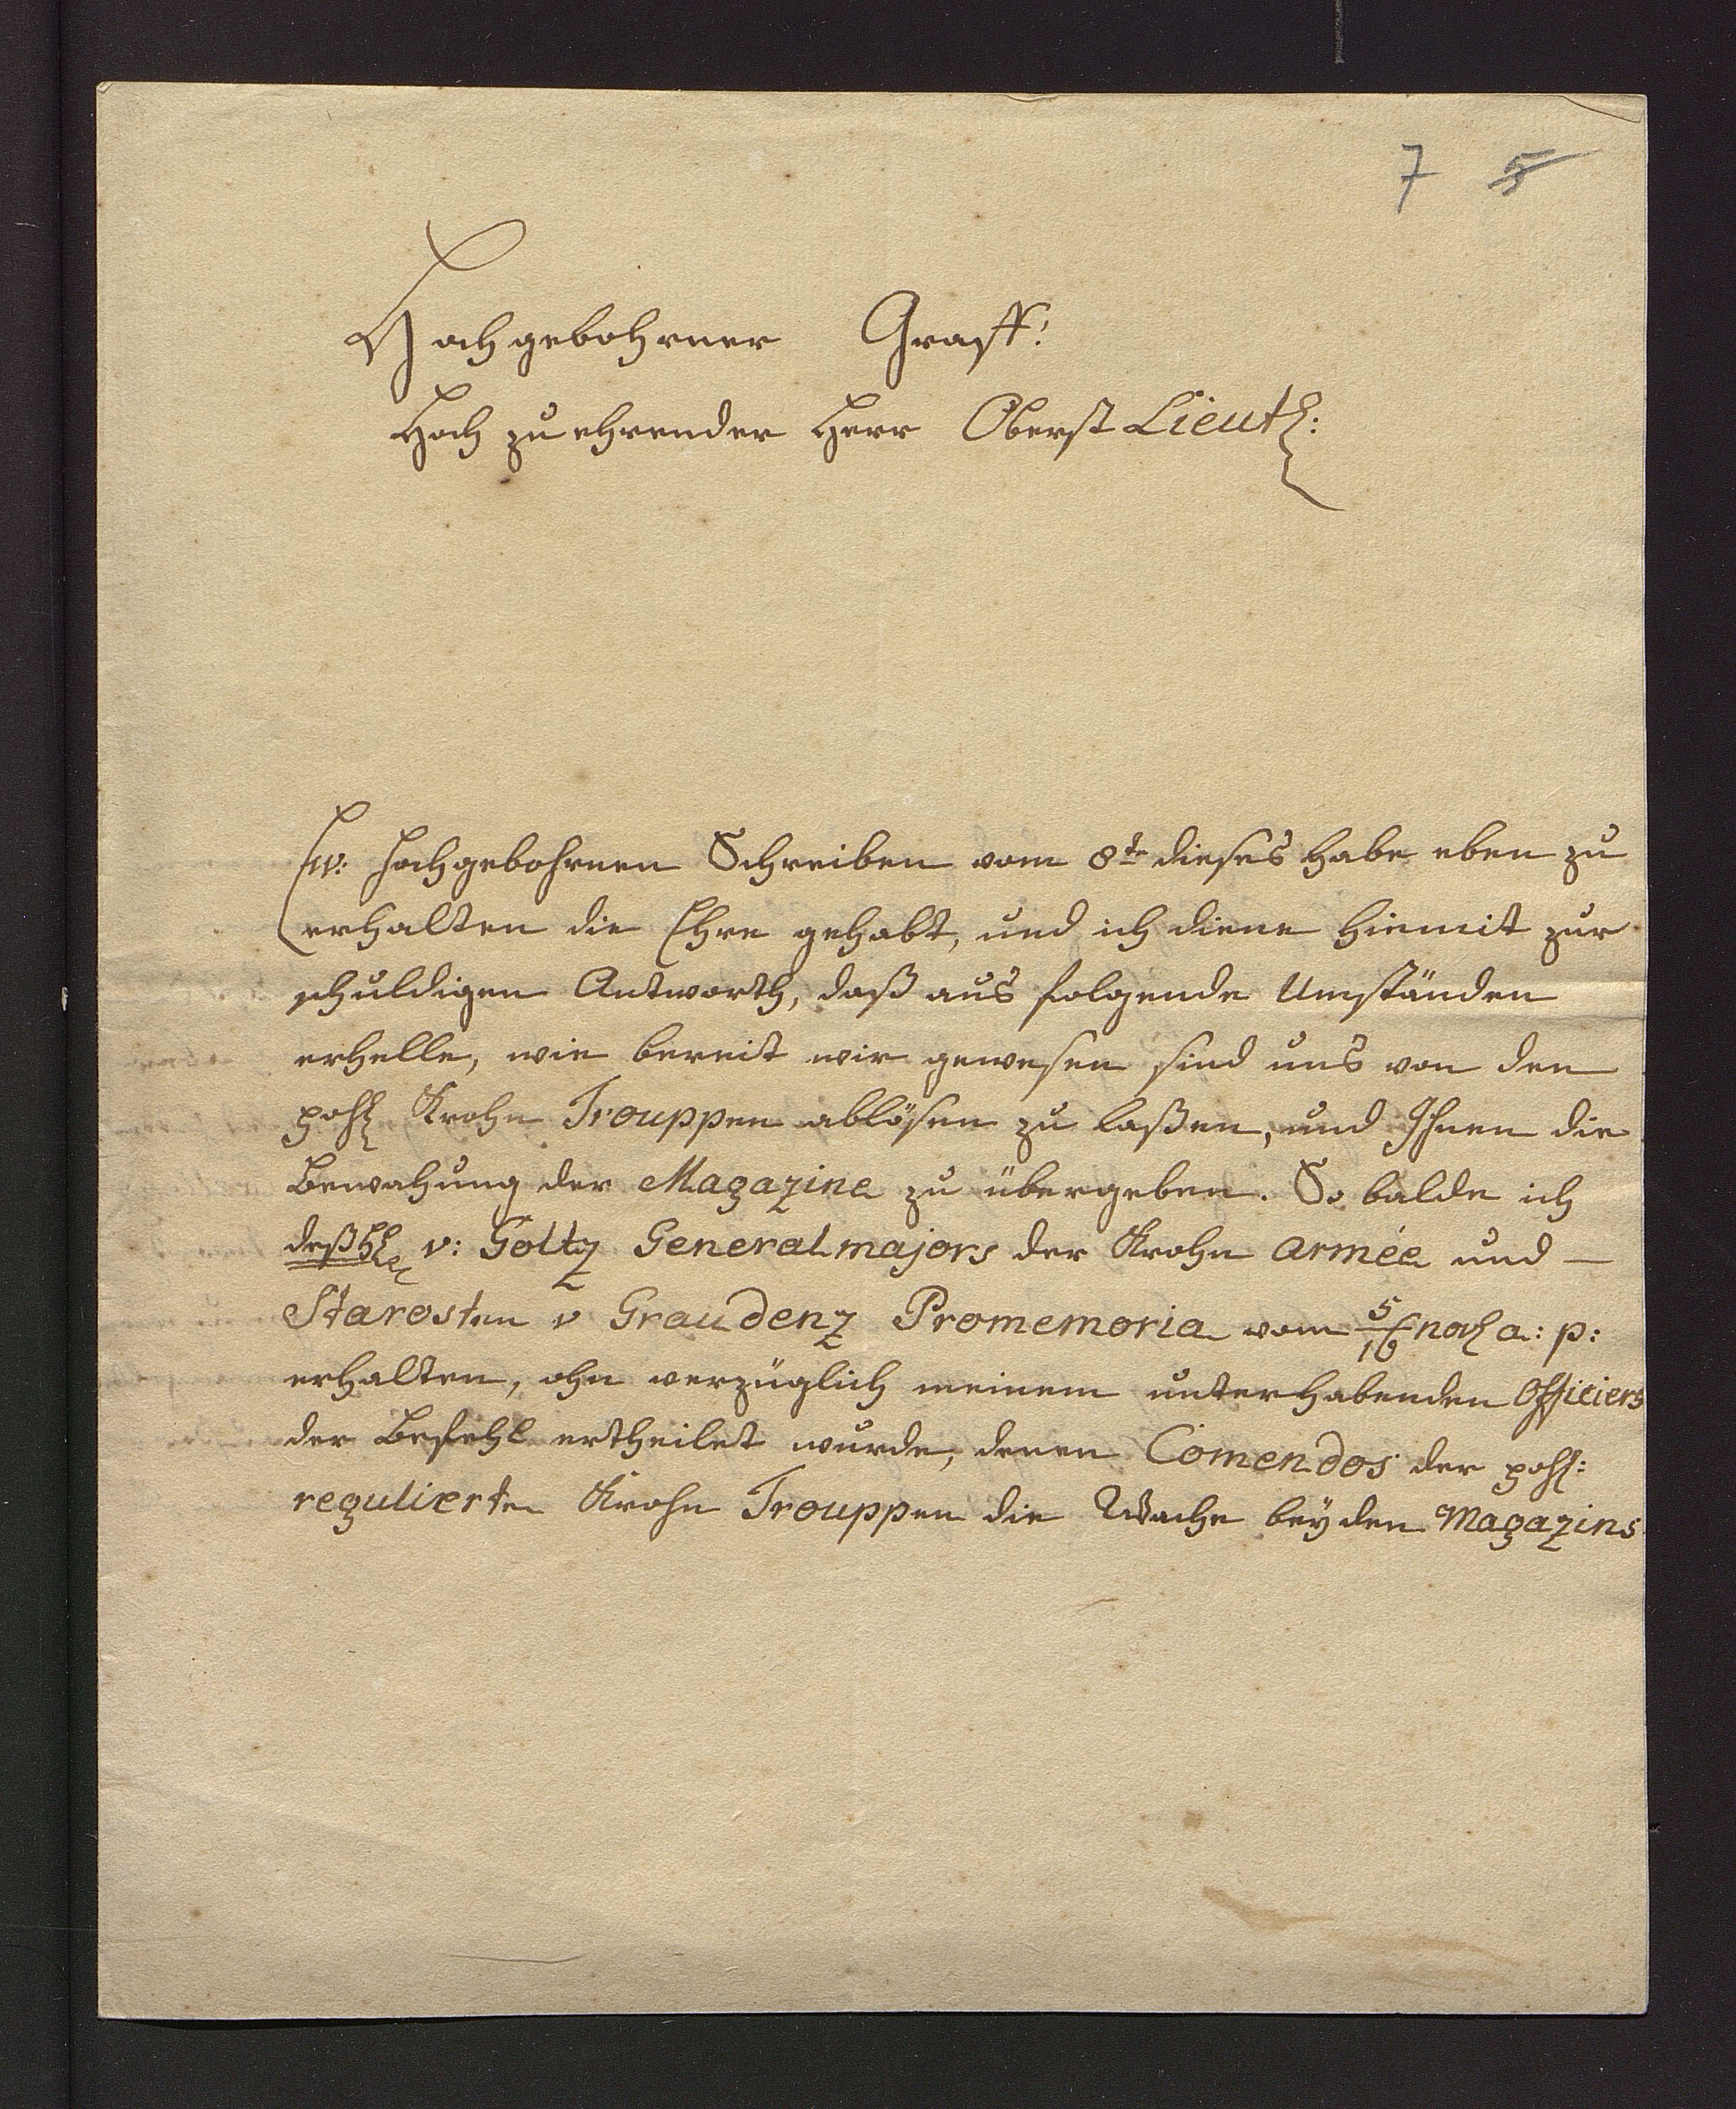 7 5
Hochgebohrner Graff!
Hoch zu ehrender Herr Oberst Lieut:
Ew: Hochgebohrnen Schreiben vom 8te dieses habe eben zu
erhalten die Ehre gehabt, und ich diene hiemit zur
schuldigen Antworth, daß aus folgende Umständen
erhelle, wie bereit wir gewesen sind uns von den
pohl Krohn Trouppen ablösen zu laßen, und Ihnen die
Bewahung der Magazine zu übergeben. So balde ich
deß H v: Goltz Generalmajors der Krohn Armée und —
Starosten v Graudenz Promemoria vom 5/16 nov a: p:
erhalten, ohn verzüglich meinem unterhabenden Officiers
der Befehl ertheilet wurde, denen Comendos der pohl:
regulierten Krohn Trouppen die Wache bey den Magazins